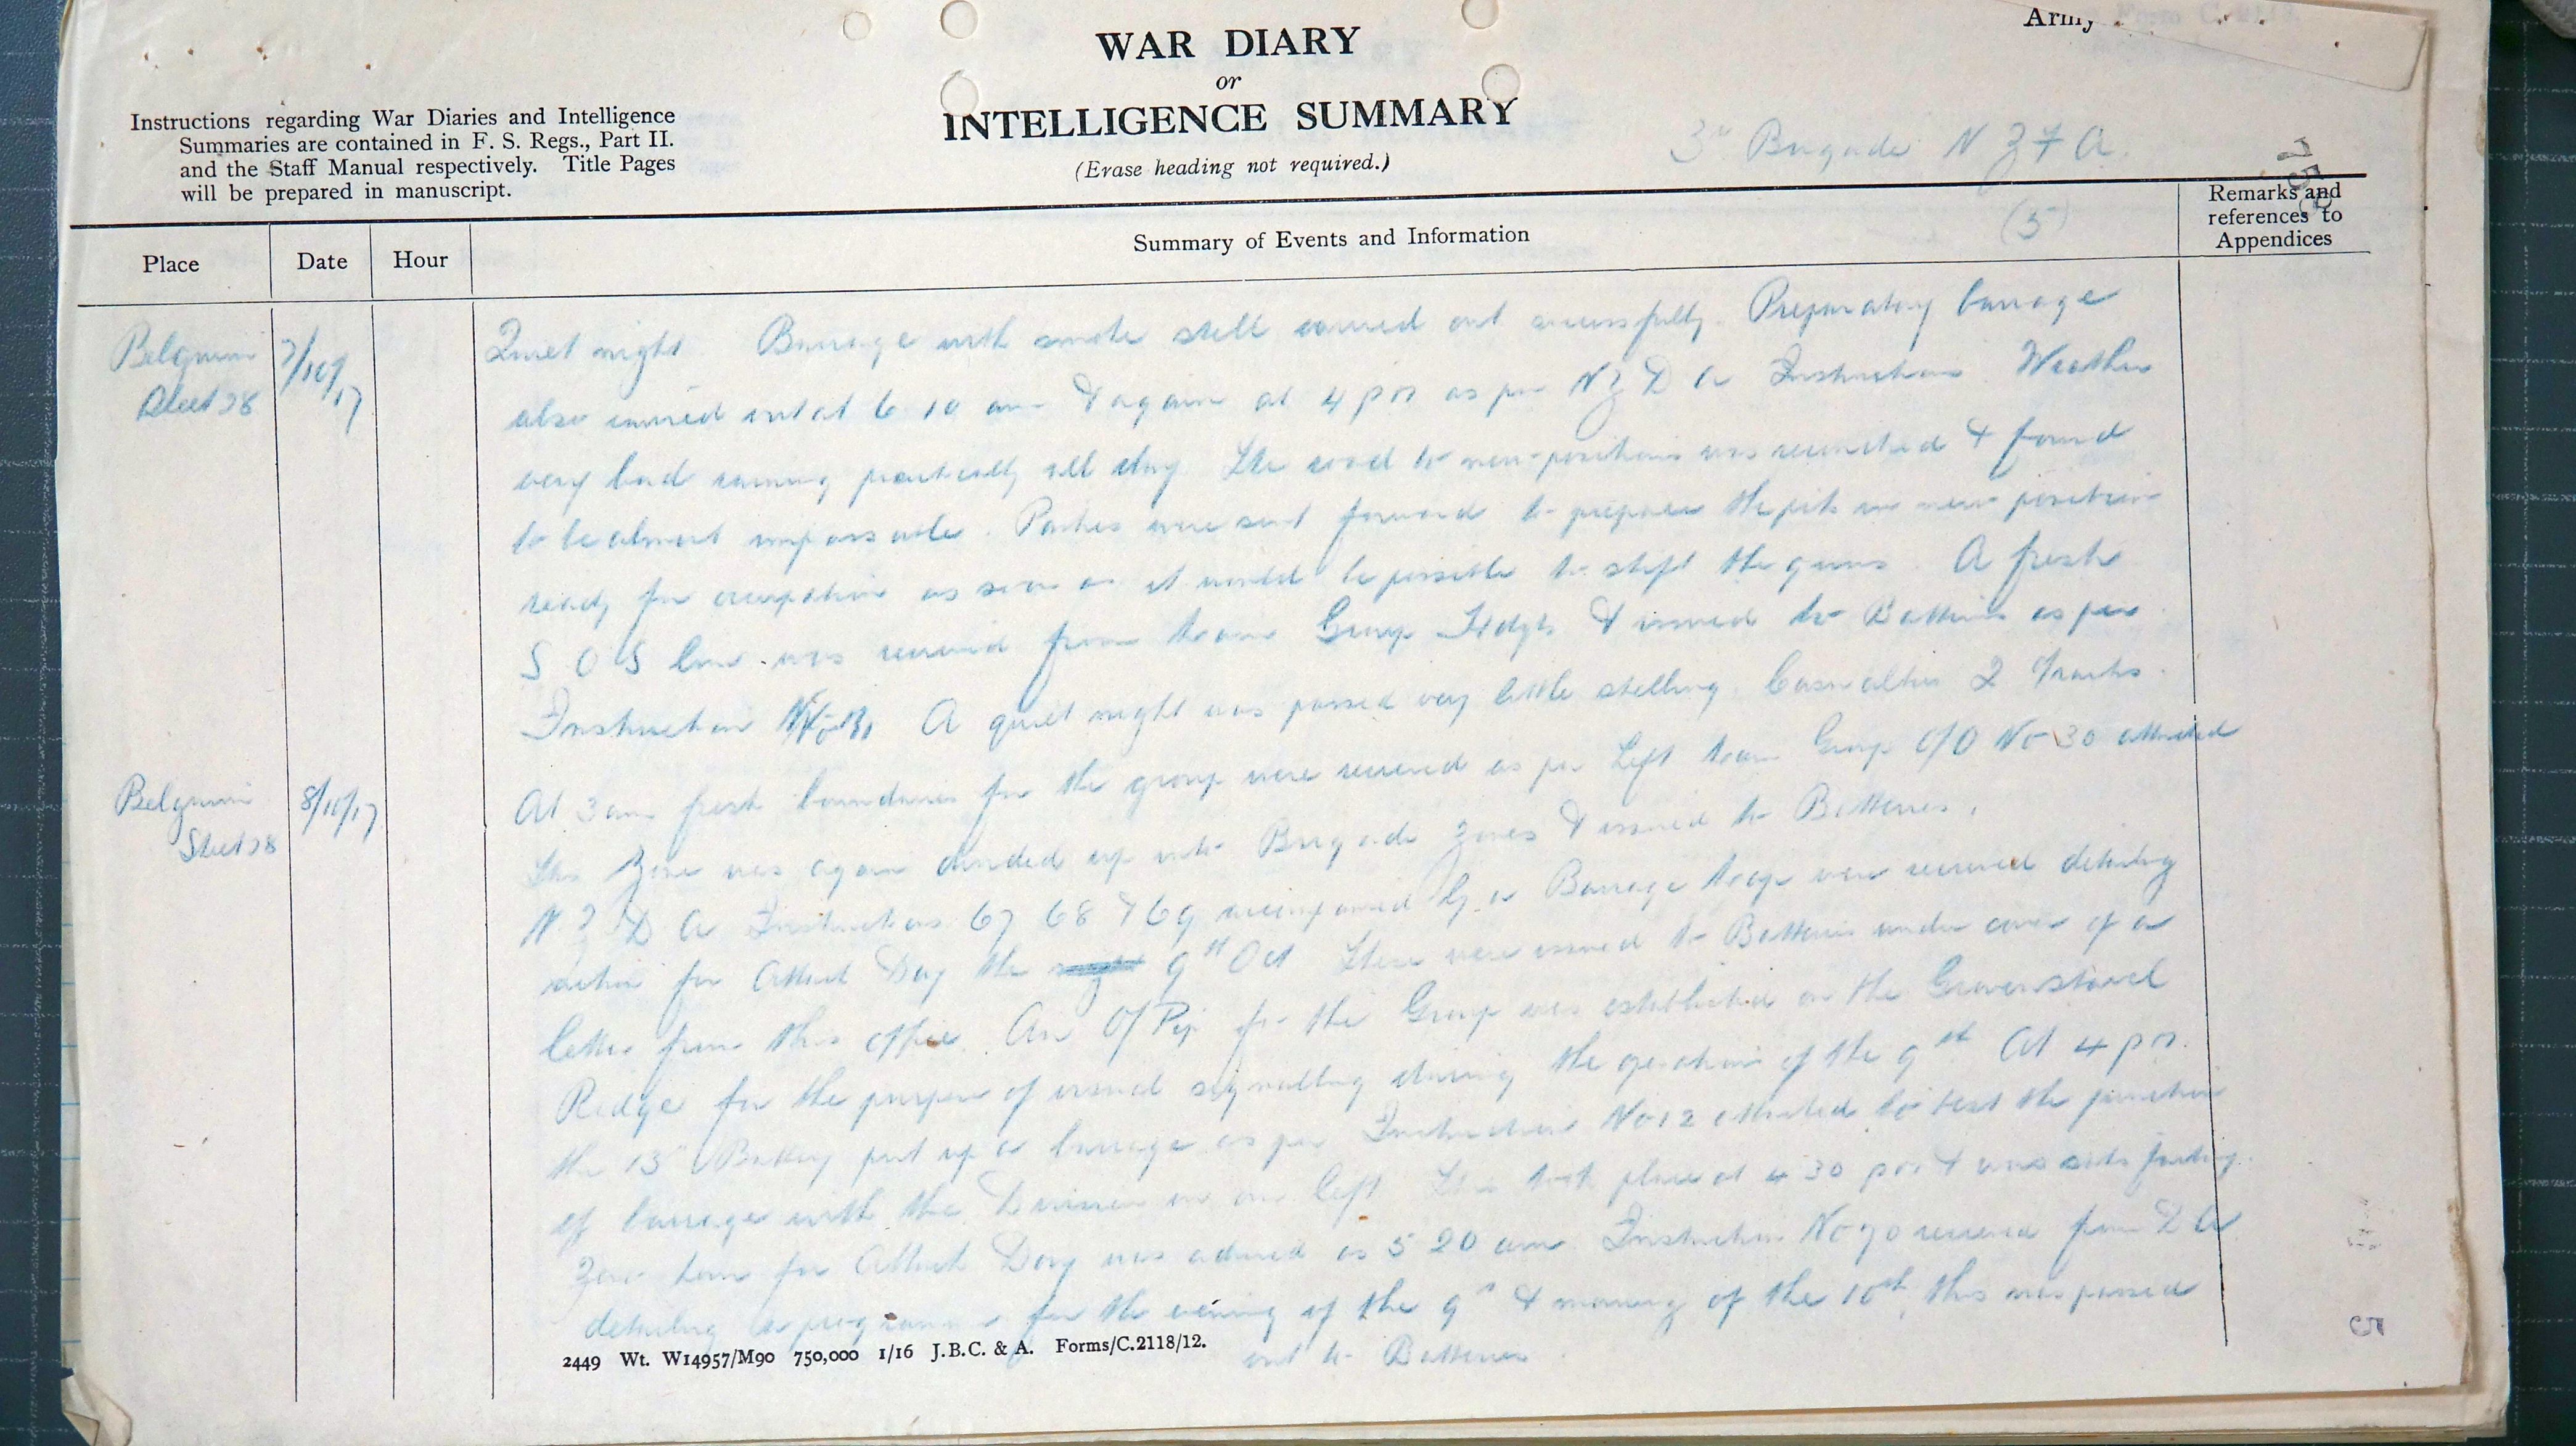 Army Form C. 2118.
WAR DIARY
or
INTELLIGENCE SUMMARY
(Erase heading not required.)
Instructions regarding War Diaries and Intelligence
Summaries are contained in F. S. Regs., Part II.
and the Staff Manual respectively. Title Pages
will be prepared in manuscript.
3rd Brigade N Z F A.
(5)
Place
Date
Hour
Summary of Events and Information
Remarks and
references to
Appendices
Belgium
Sheet 28
7/10/17
Quiet night. Barrage with smoke shell carried out successfully. Preparatory barrage
also carried out at 6 10 am & again at 4 pm as per N Z D A Instructions. Weather
very bad raining practically all day. The road to new positions was reconnoitred & found
to be almost impassable. Parties were sent forward to prepare the pits in new position
ready for occupation as soon as it would be possible to shift the guns. A fresh
S O S line was received from Group Hdqts & issued to Batteries as per
Instruction No 11 A quiet night was passed very little shelling. Casualties 2
Belgium
Sheet 28
8/10/17
At 3 am fresh boundaries for the group were received as per Left Group O/O No 30 attached
This Zone was again divided up into Brigade zones & issued to Batteries.
N Z D A Instructions 67 68 & 69 accompanied by a Barrage map were received detailing
action for Attack Day the 9th Oct These were issued to Batteries under cover of a
letter from this office. An O/Pip for the Group was established on the Gravenstavel
Ridge for the purpose of visual signalling during the operations of the 9th At 4 pm.
the 13th Battery put up a barrage as per Instruction No 12 attached to test the junction
of barrage with the Division on our left This took place at 4 30 pm & was satisfactory.
Zero hour for Attack Day was advised as 5 20 am. Instruction No 70 received from D A
detailing a programme for the evening of the 9th & morning of the 10th, this was passed
out to Batteries.
2449 Wt. W14957/M90 750,000 1/16 J.B.C. & A. Forms/C.2118/12.
5